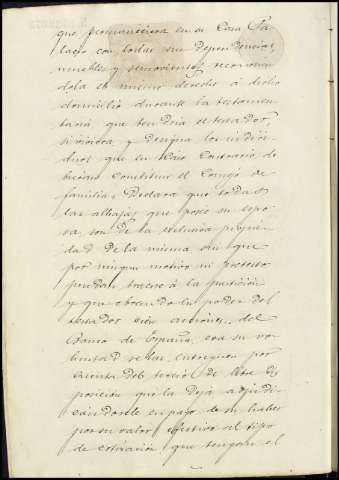 que permaneciera en su Casa Pa-
lacio con todas sus dependencias,
muebles y semovientes, reconocien
dola el mismo derecho á dicho
domicilio durante la testamen-
taria, que tendria el testador,
si viviera, y designa los indivi-
duos que en caso contrario de
berán constituir el Consejo de
familia. Declara que todas
las alhajas que posee su espo-
sa, son de la exclusiva propie-
dad de la misma sin que
por ningun motivo ni pretesto
puedan traerse á la particion
y que obrando en poder del
testador cien acciones del
Banco de España, era su vo-
luntad se las entreguen por
cuenta del tercio de libre dis
posicion que la deja adjudi-
cándosele en pago de su haber
por su valor efectivo al tipo
de cotizacion que tengan el